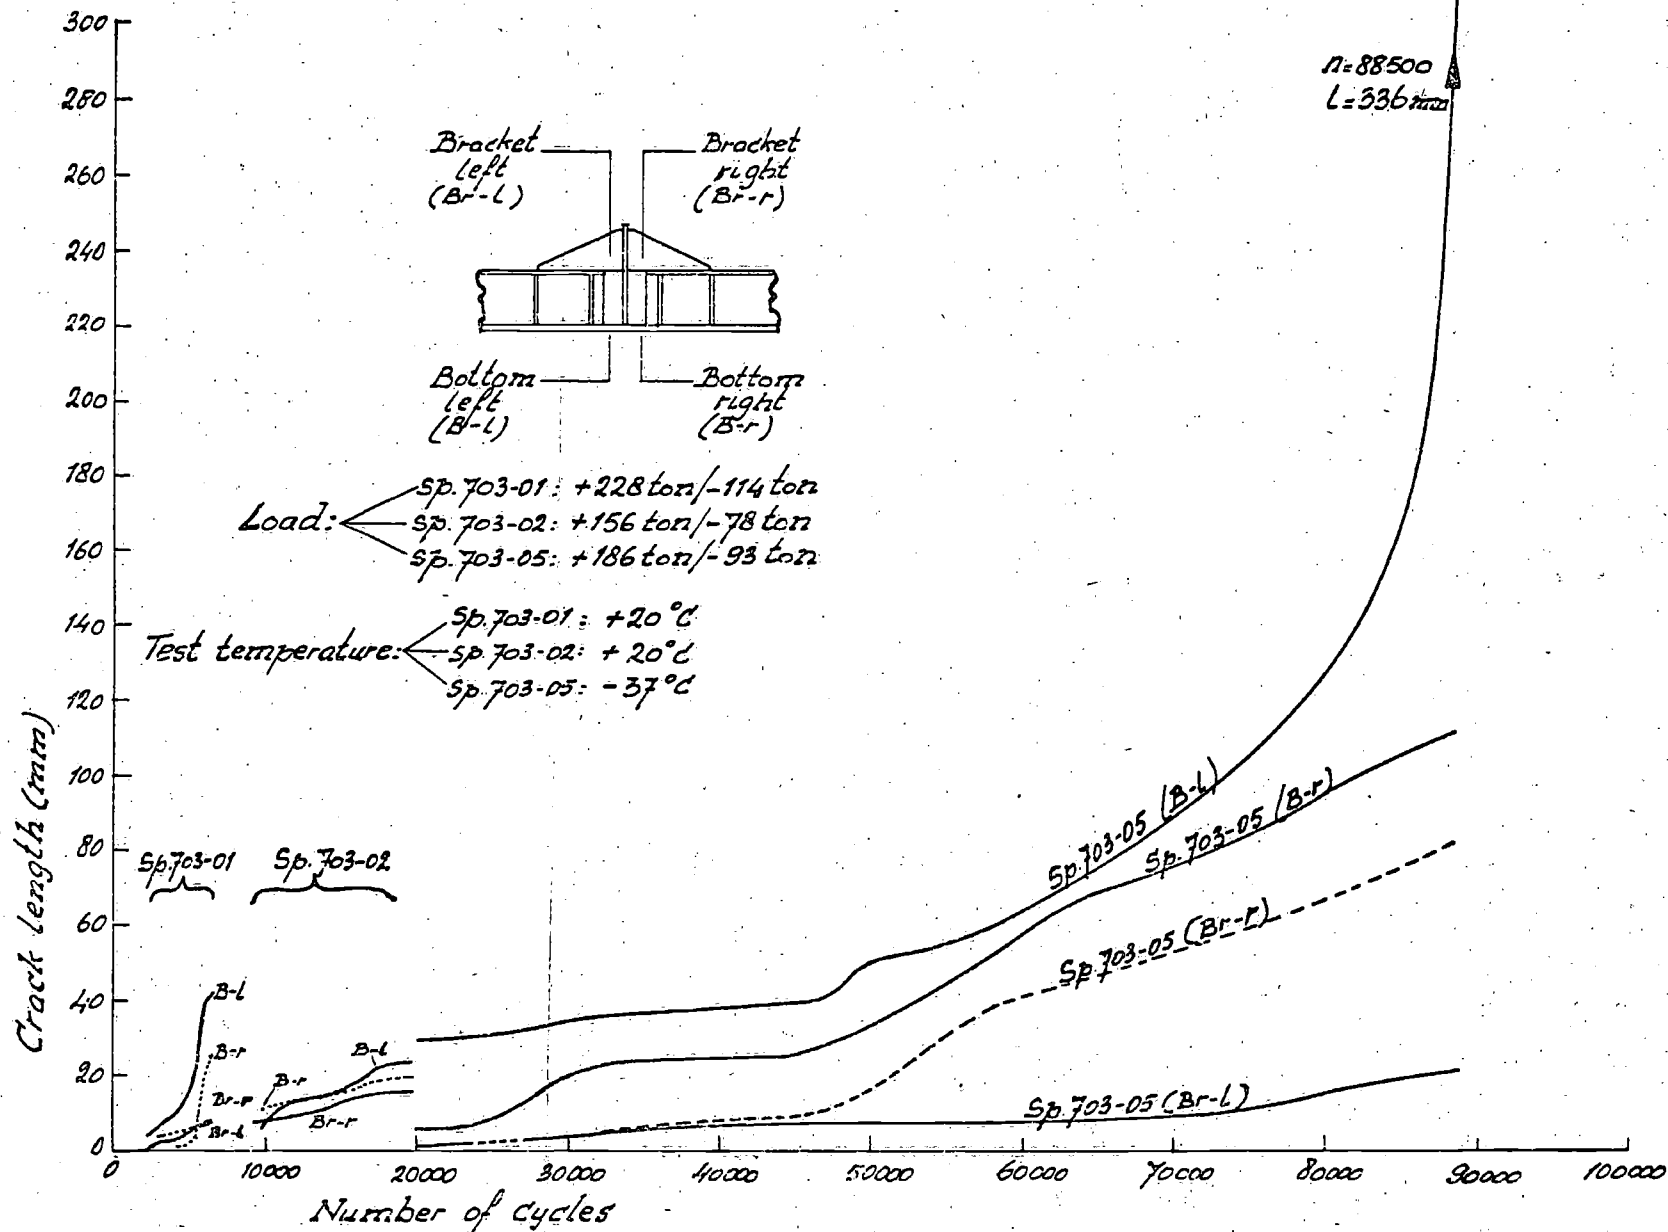 300
280
260
240
220
200
180
160
140
120
100
80
60
40
20
0
Crack length (mm)
n=88500
l=336mm
Bracket left (Br-l)
Bracket right (Br-r)
Bottom left (B-l)
Bottom right (B-r)
Load:
Sp.703-01: +228 ton/-114 ton
Sp.703-02: +156 ton/-78 ton
Sp.703-05: +186 ton/-93 ton
Test temperature:
Sp.703-01: +20°C
Sp.703-02: +20°C
Sp.703-05: -37°C
Sp.703-01
Sp.703-02
B-l
B-r
Br-r
Br-l
B-r
B-l
Br-r
Sp.703-05 (B-l)
Sp.703-05 (B-r)
Sp.703-05 (Br-r)
Sp.703-05 (Br-l)
0 10000 20000 30000 40000 50000 60000 70000 80000 90000 100000
Number of cycles